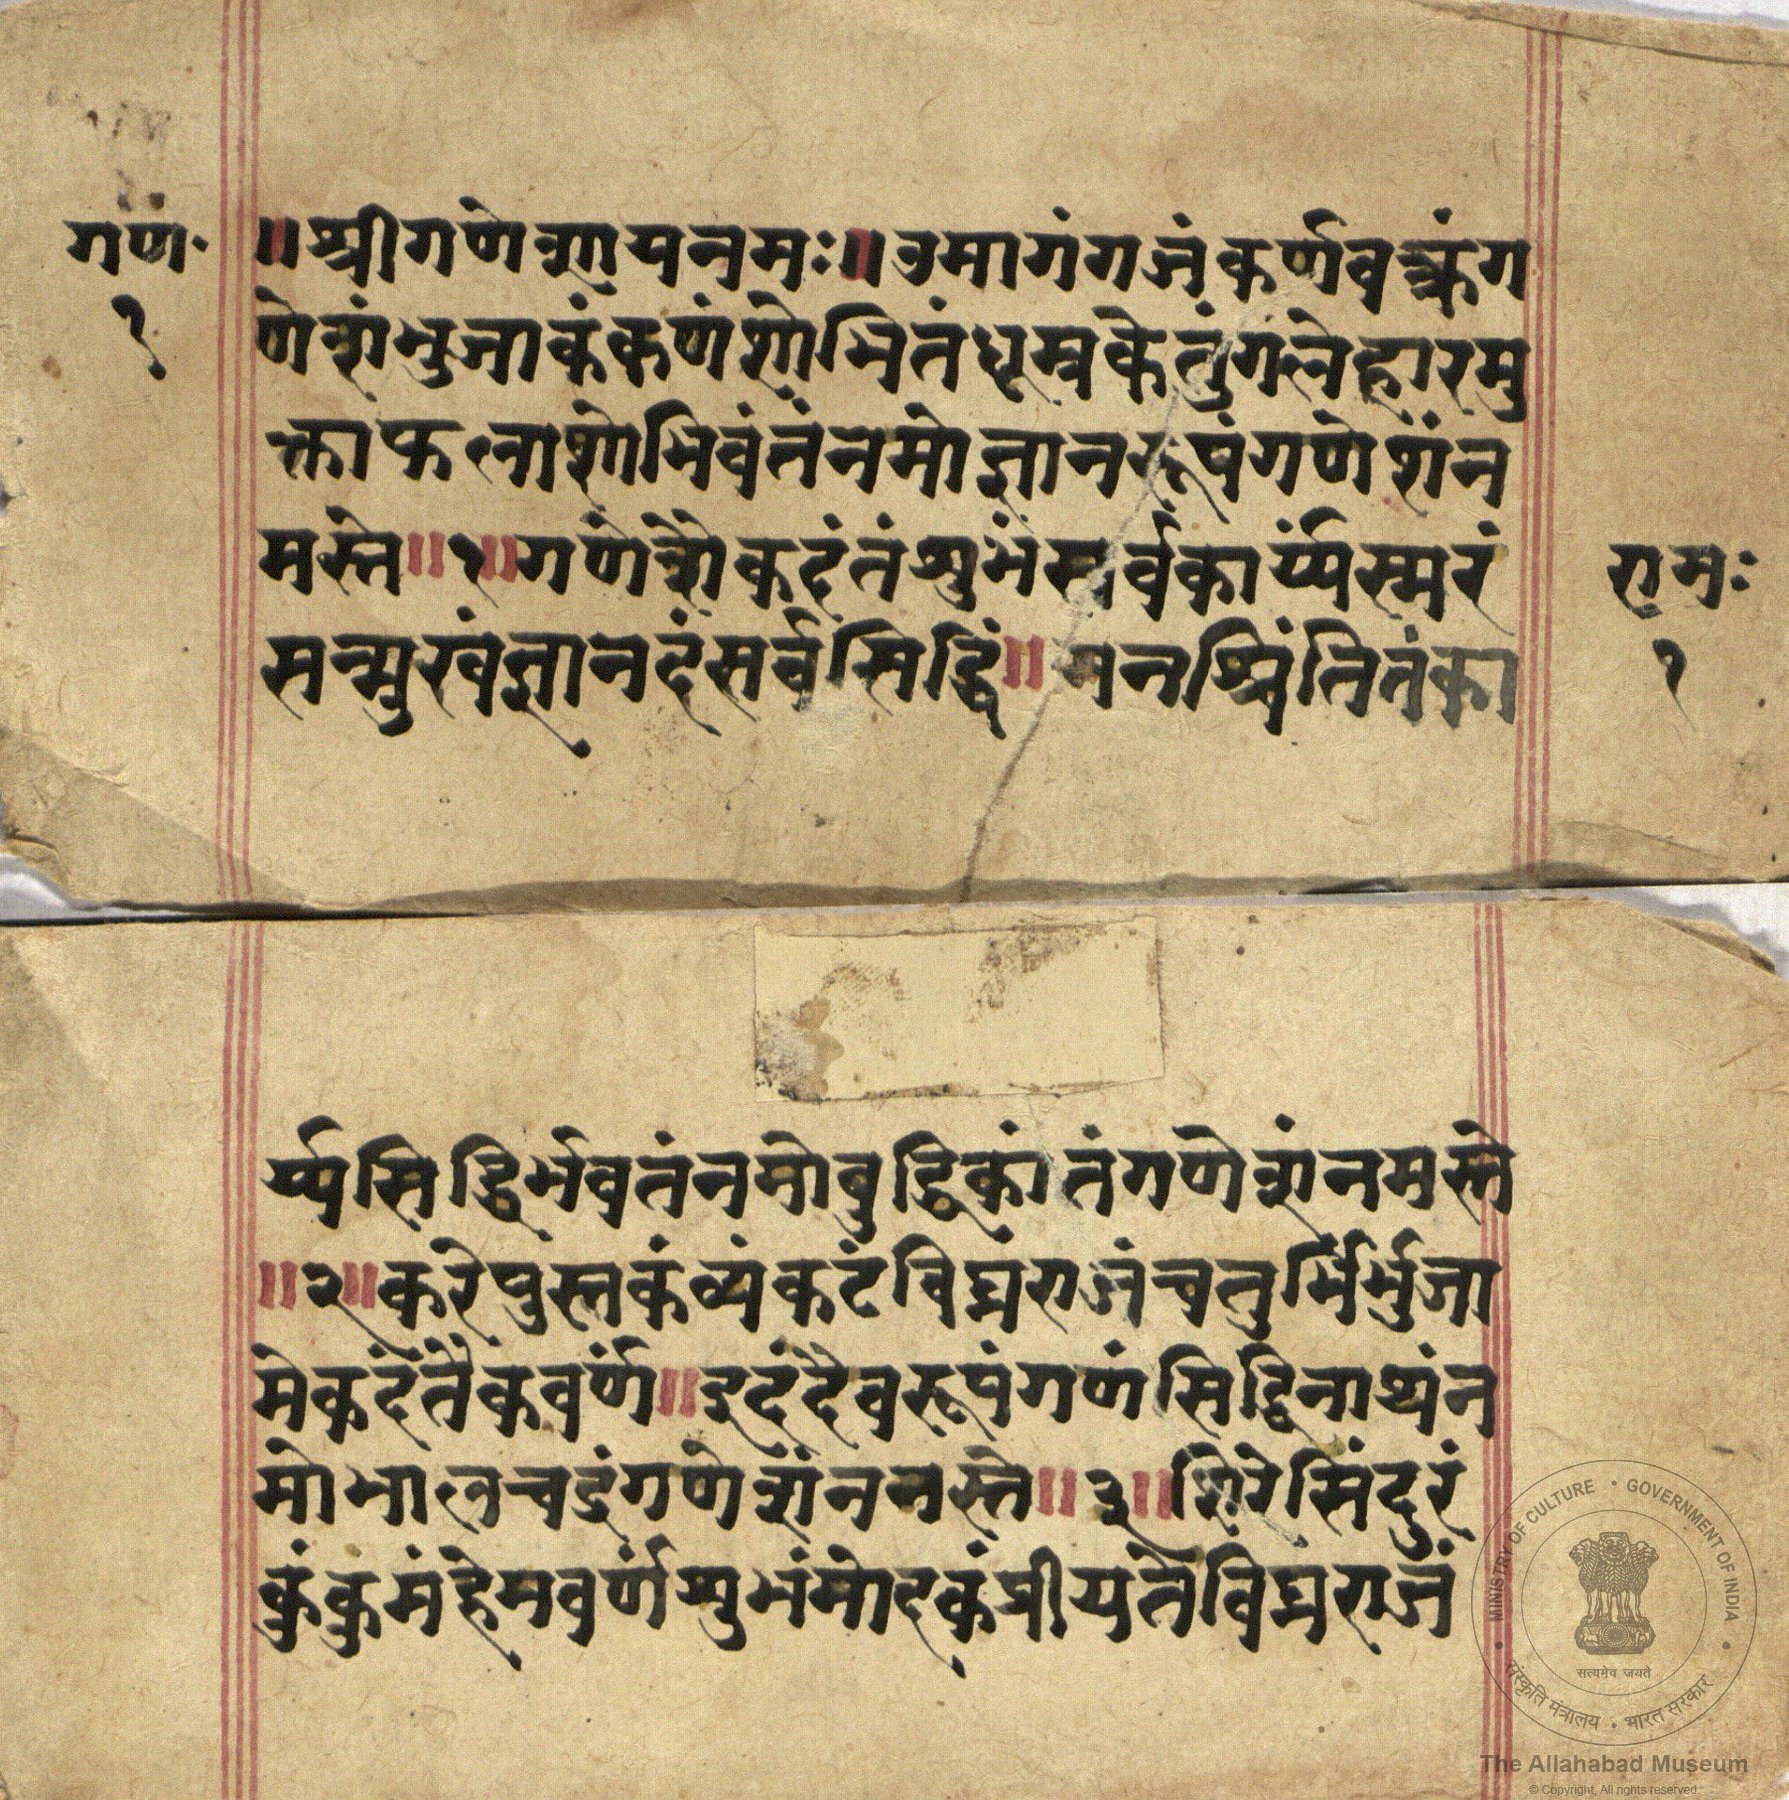 गण॰
१
॥श्रीगणेशायनमः॥उमागंगजंकर्णवक्त्रंग
णेशंभुजाकंकणंशोभितंधूम्रकेतुंगलेहारमु
क्ताफलाशोभिवंतंनमोज्ञानरूपंगणेशंन
मस्ते॥१॥गणेशैकदंतंशुभंसर्वकार्य्यस्मरं
सन्मुखंज्ञानदंसर्वसिद्धिं॥मनश्चिंतितंका
रामः
१
र्य्यसिद्धिर्भवतंनमोबुद्धिकांतंगणेशंनमस्ते
॥२॥करेपुस्तकंव्यंकटंविघ्नराजंचतुर्भिर्भुजा
मेकदंतैकवर्णं॥इदंदैवरूपंगणंसिद्धिनाथंन
मोभालचंद्रंगणेशंनमस्ते॥३॥शिरेसिंदुरं
कुंकुमंहेमवर्णंशुभंमोदकंप्रीयतेविघ्नराजं
MINISTRY OF CULTURE • GOVERNMENT OF INDIA
सत्यमेव जयते
संस्कृति मंत्रालय • भारत सरकार
The Allahabad Museum
© Copyright, All rights reserved.